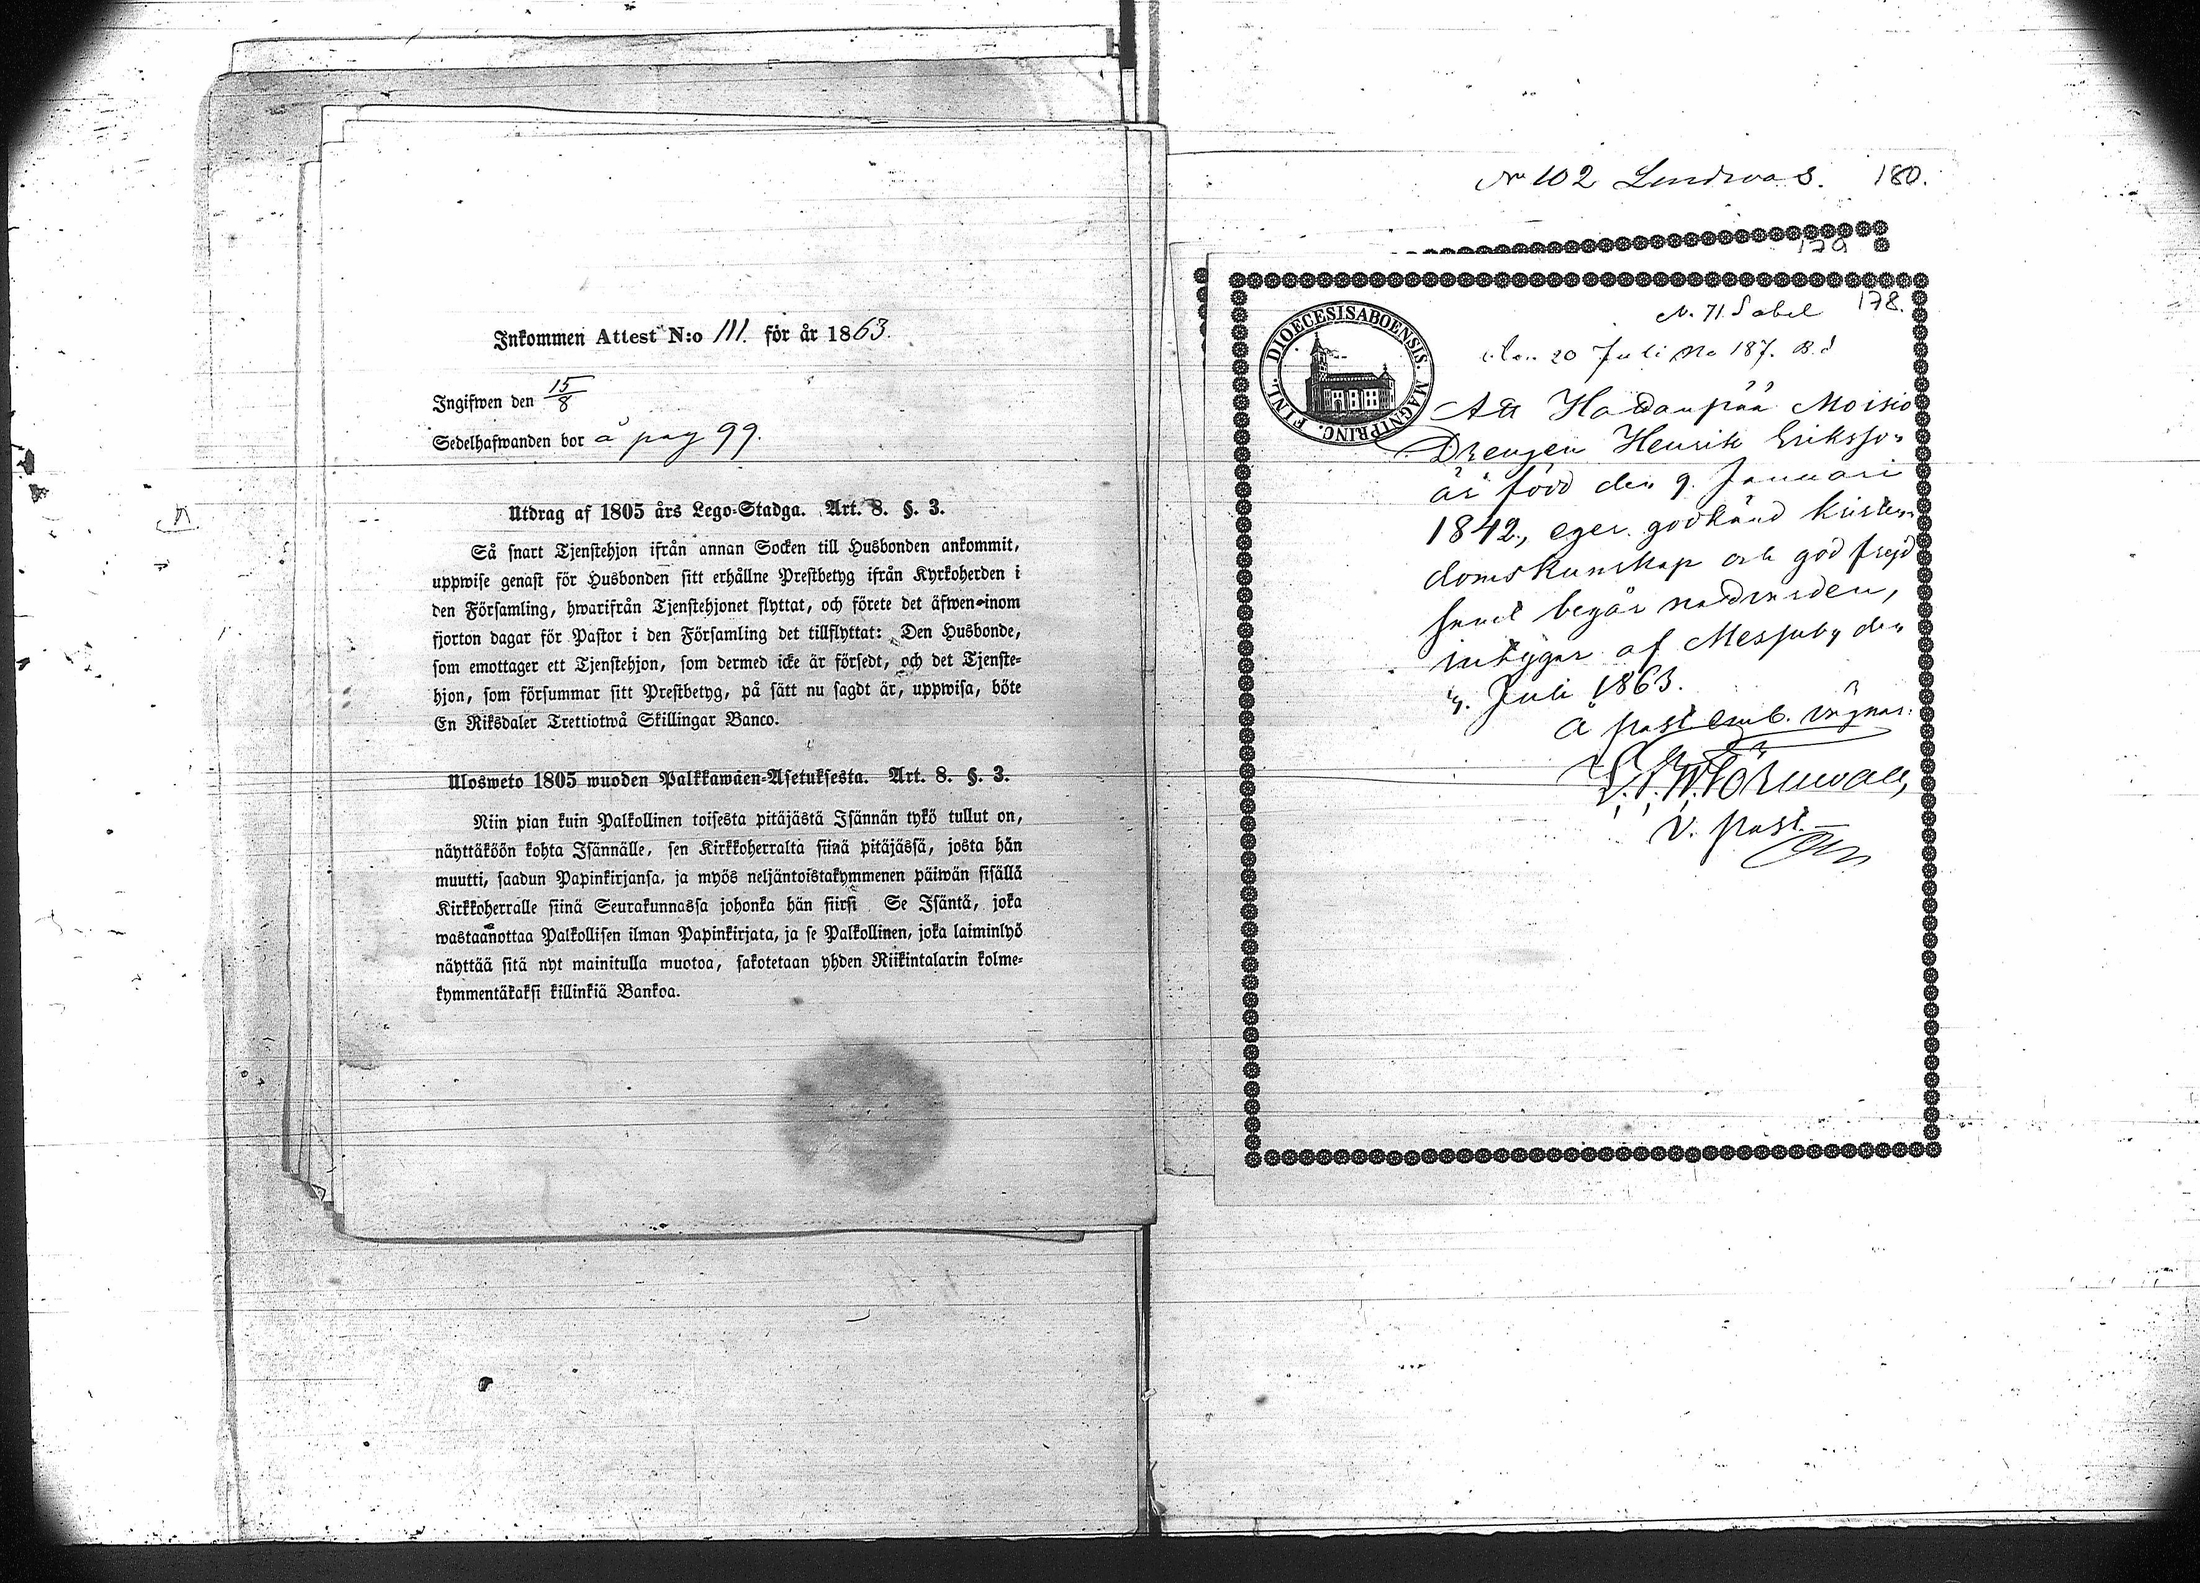 Inkommen Attest N:o 111. för år 1863.
Ingifwen den 15/8
Sedelhafwanden bor å pag 99.
Utdrag af 1805 års Lego-Stadga. Art. 8. §. 3.
Så snart Tjenstehjon ifrån annan Socken till Husbonden ankommit,
uppwise genast för Husbonden sitt erhållne Prestbetyg ifrån Kyrkoherden i
den Församling, hwarifrån Tjenstehjonet flyttat, och förete det äfwen inom
fjorton dagar för Pastor i den Församling det tillflyttat: Den Husbonde,
som emottager ett Tjenstehjon, som dermed icke är försedt, och det Tjenste-
hjon, som försummar sitt Prestbetyg, på sätt nu sagdt är, uppwisa, böte
En Riksdaler Trettiotwå Skillingar Banco.
Ulosweto 1805 wuoden Palkkawäen-Asetuksesta. Art. 8. §. 3.
Niin pian kuin Palkollinen toisesta pitäjästä Isännän tykö tullut on,
näyttäköön kohta Isännälle, sen Kirkkoherralta siinä pitäjässä, josta hän
muutti, saadun Papinkirjansa, ja myös neljäntoistakymmenen päiwän sisällä
Kirkkoherralle siinä Seurakunnassa johonka hän siirsi Se Isäntä, joka
wastaanottaa Palkollisen ilman Papinkirjata, ja se Palkollinen, joka laiminlyö
näyttää sitä nyt mainitulla muotoa, sakotetaan yhden Riikintalarin kolme-
kymmentäkaksi killinkiä Bankoa.
No 102 180.
179
178.
N. 71.
20 Juli No 187.
DIOECESIS ABOENSIS. MAGNI PRINC. FINL.
Att Moisio
Drengen Henrik Eriksson
är född den 9. Januari
1842., eger godkänd kristen
domskunskap och god frejd
samt begår nattvarden,
intygar af Messuby den
4. Juli 1863.
Å past. emb. vägnar.
V. past.